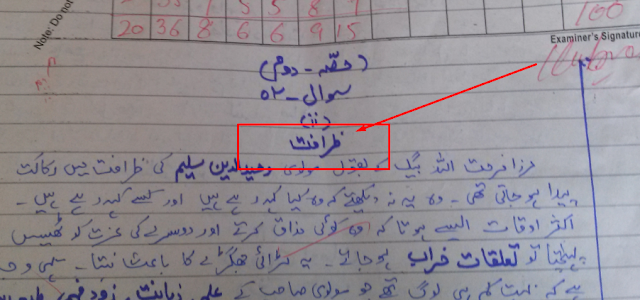 Note: Do not
20 36 8 6 6 9 15
5 5 8
100
Examiner's Signature
(حصّہ - دوم)
سوال - ۵۲
(ii)
ظرافت
مرزا فرحت اللہ بیگ کے بقول مولوی وحیدالدین سلیم کی ظرافت میں رکاکت
پیدا ہو جاتی تھی - وہ یہ نہ دیکھتے کہ وہ کیا کہہ رہے ہیں اور کسے کہہ رہے ہیں -
اکثر اوقات ایسے ہوتا کہ وہ کوئی مذاق کرتے اور دوسرے کی عزت کو ٹھیس
پہنچتی تو تعلقات خراب ہو جاتے - یہ لڑائی جھگڑے کا باعث بنتا -
ہے کہ بہت کم ہی لوگ تھے جو مولوی صاحب کے علم، ذہانت، زود فہمی